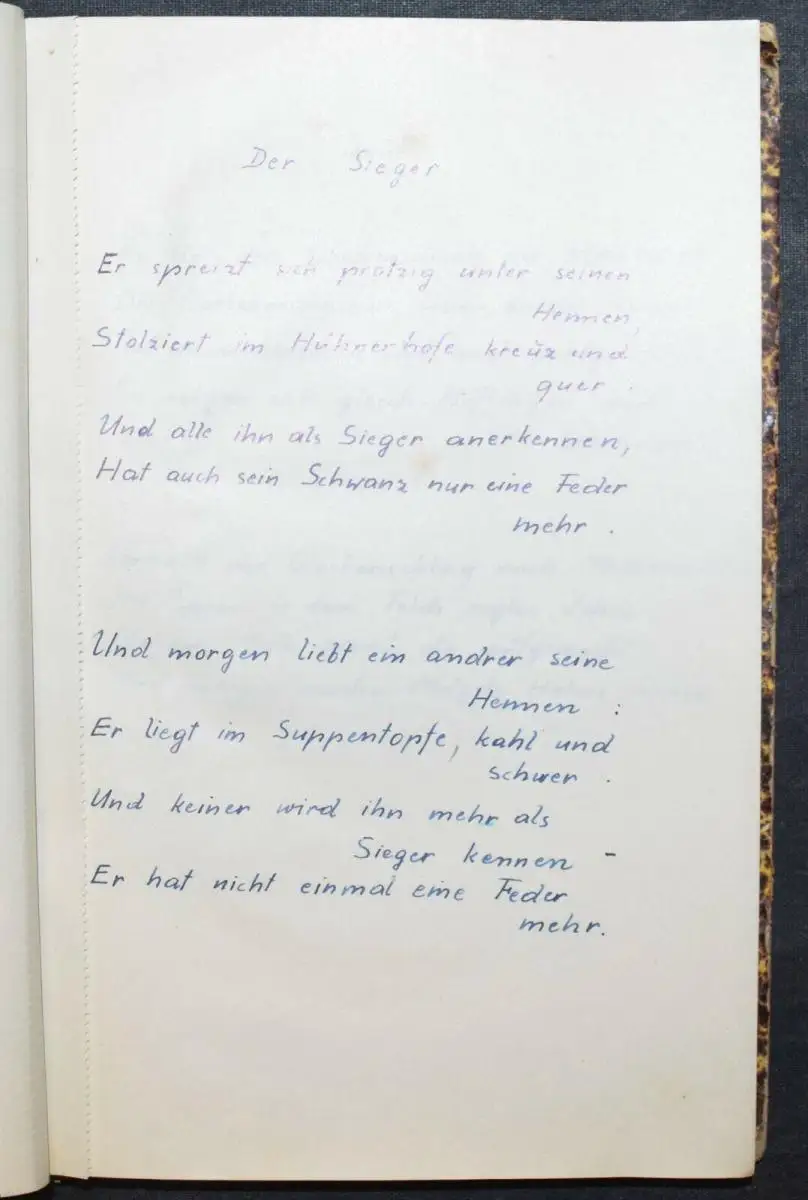 Der Sieger
Er spreizt sich protzig unter seinen
Hennen,
Stolziert im Hühnerhofe kreuz und
quer.
Und alle ihn als Sieger anerkennen,
Hat auch sein Schwanz nur eine Feder
mehr.
Und morgen liebt ein andrer seine
Hennen:
Er liegt im Suppentopfe, kahl und
schwer.
Und keiner wird ihn mehr als
Sieger kennen -
Er hat nicht einmal eine Feder
mehr.